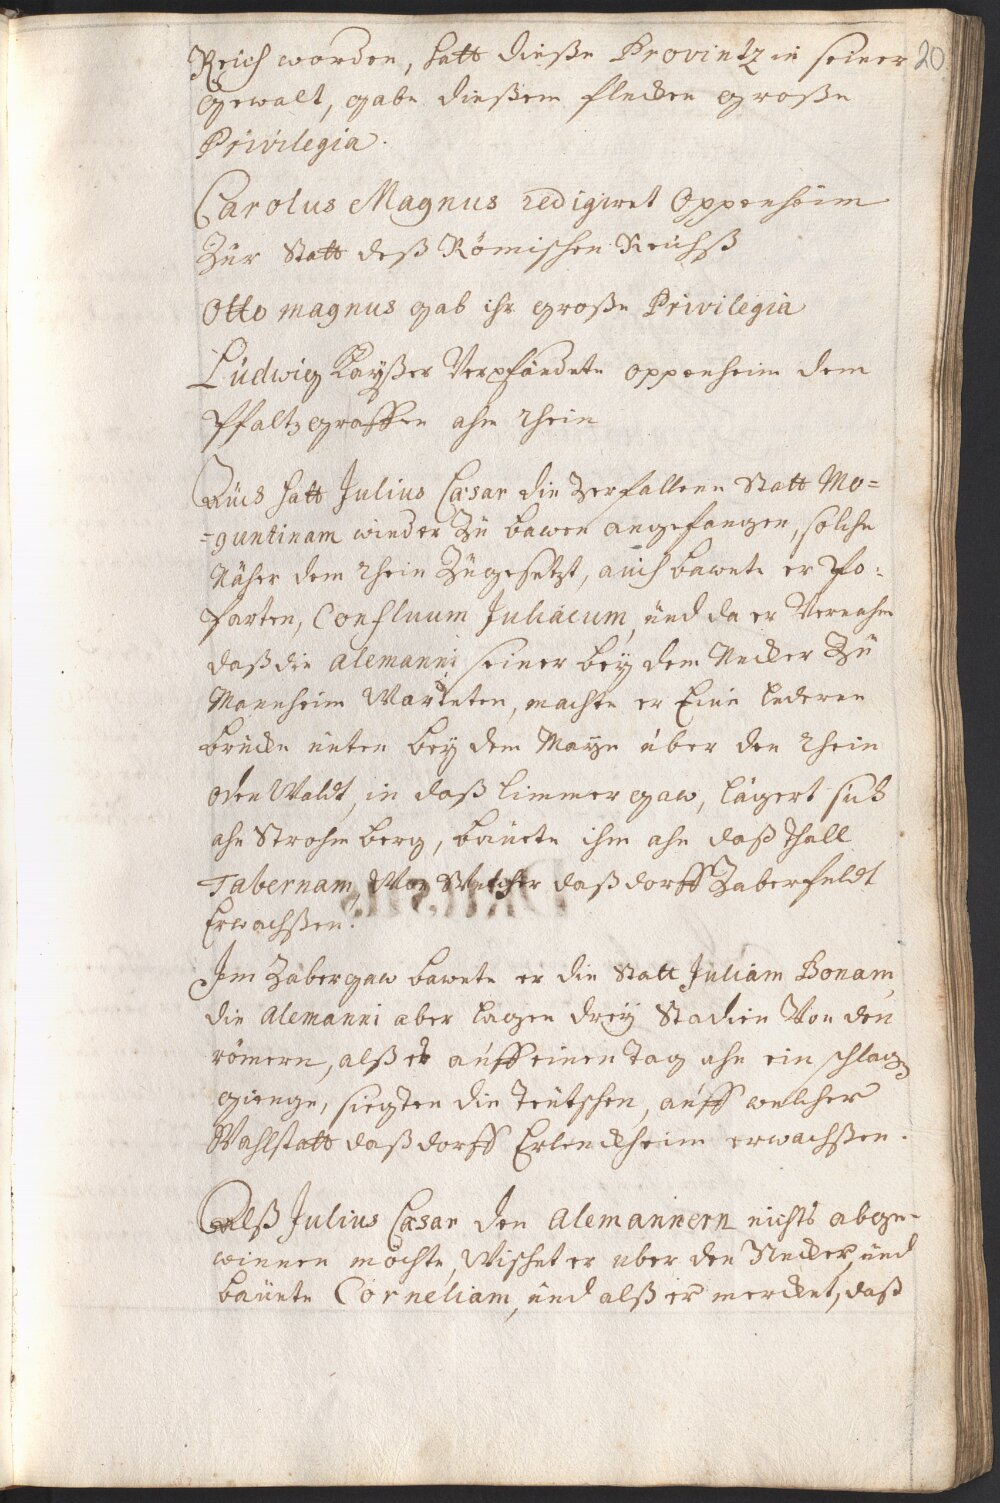 20
Reich worden, hatt dieße Provintz in seiner
Gewalt, gabe dießem flecken große
Privilegia.
Carolus Magnus redigiret Oppenheim
Zur Statt deß Römischen Reichß
Otto magnus gab ihr große Privilegia
Ludwig Kayßer Verpfändete oppenheim dem
Pfaltzgraffen ahm rhein
Auch hatt Julius Cæsar die Zerfallene Statt Mo=
=guntinam wieder Zu bawen angefangen, solche
Näher dem rhein Zugesetzt, auch bawete er Po=
sarten, Confluum Juliacum, und da er Vernahm
daß die Alemanni seiner bey dem Necker Zu
Mannheim Warteten, machte er Eine lederne
brücke unten bey dem Mayn über den rhein
oden Waldt, in daß limmergaw, lägert sich
ahn Strohmberg, bauete ihm ahn daß Thall
Tabernam, Von Welcher daß dorff Zaberfeldt
Erwachßen.
Im Zabergaw bawete er die Statt Juliam Bonam,
die Alemanni aber lagen drey Stadien Von den
römern, alß eß auff einen tag ahn ein schlagen
gienge, siegten die Teutschen, auff welcher
Wahlstatt daß dorff Erlenckheim erwachßen.
Alß Julius Cæsar den Alemannern nichts abge=
winnen mochte, Wischet er uber den Necker, und
bauete Corneliam, und alß er mercket, daß